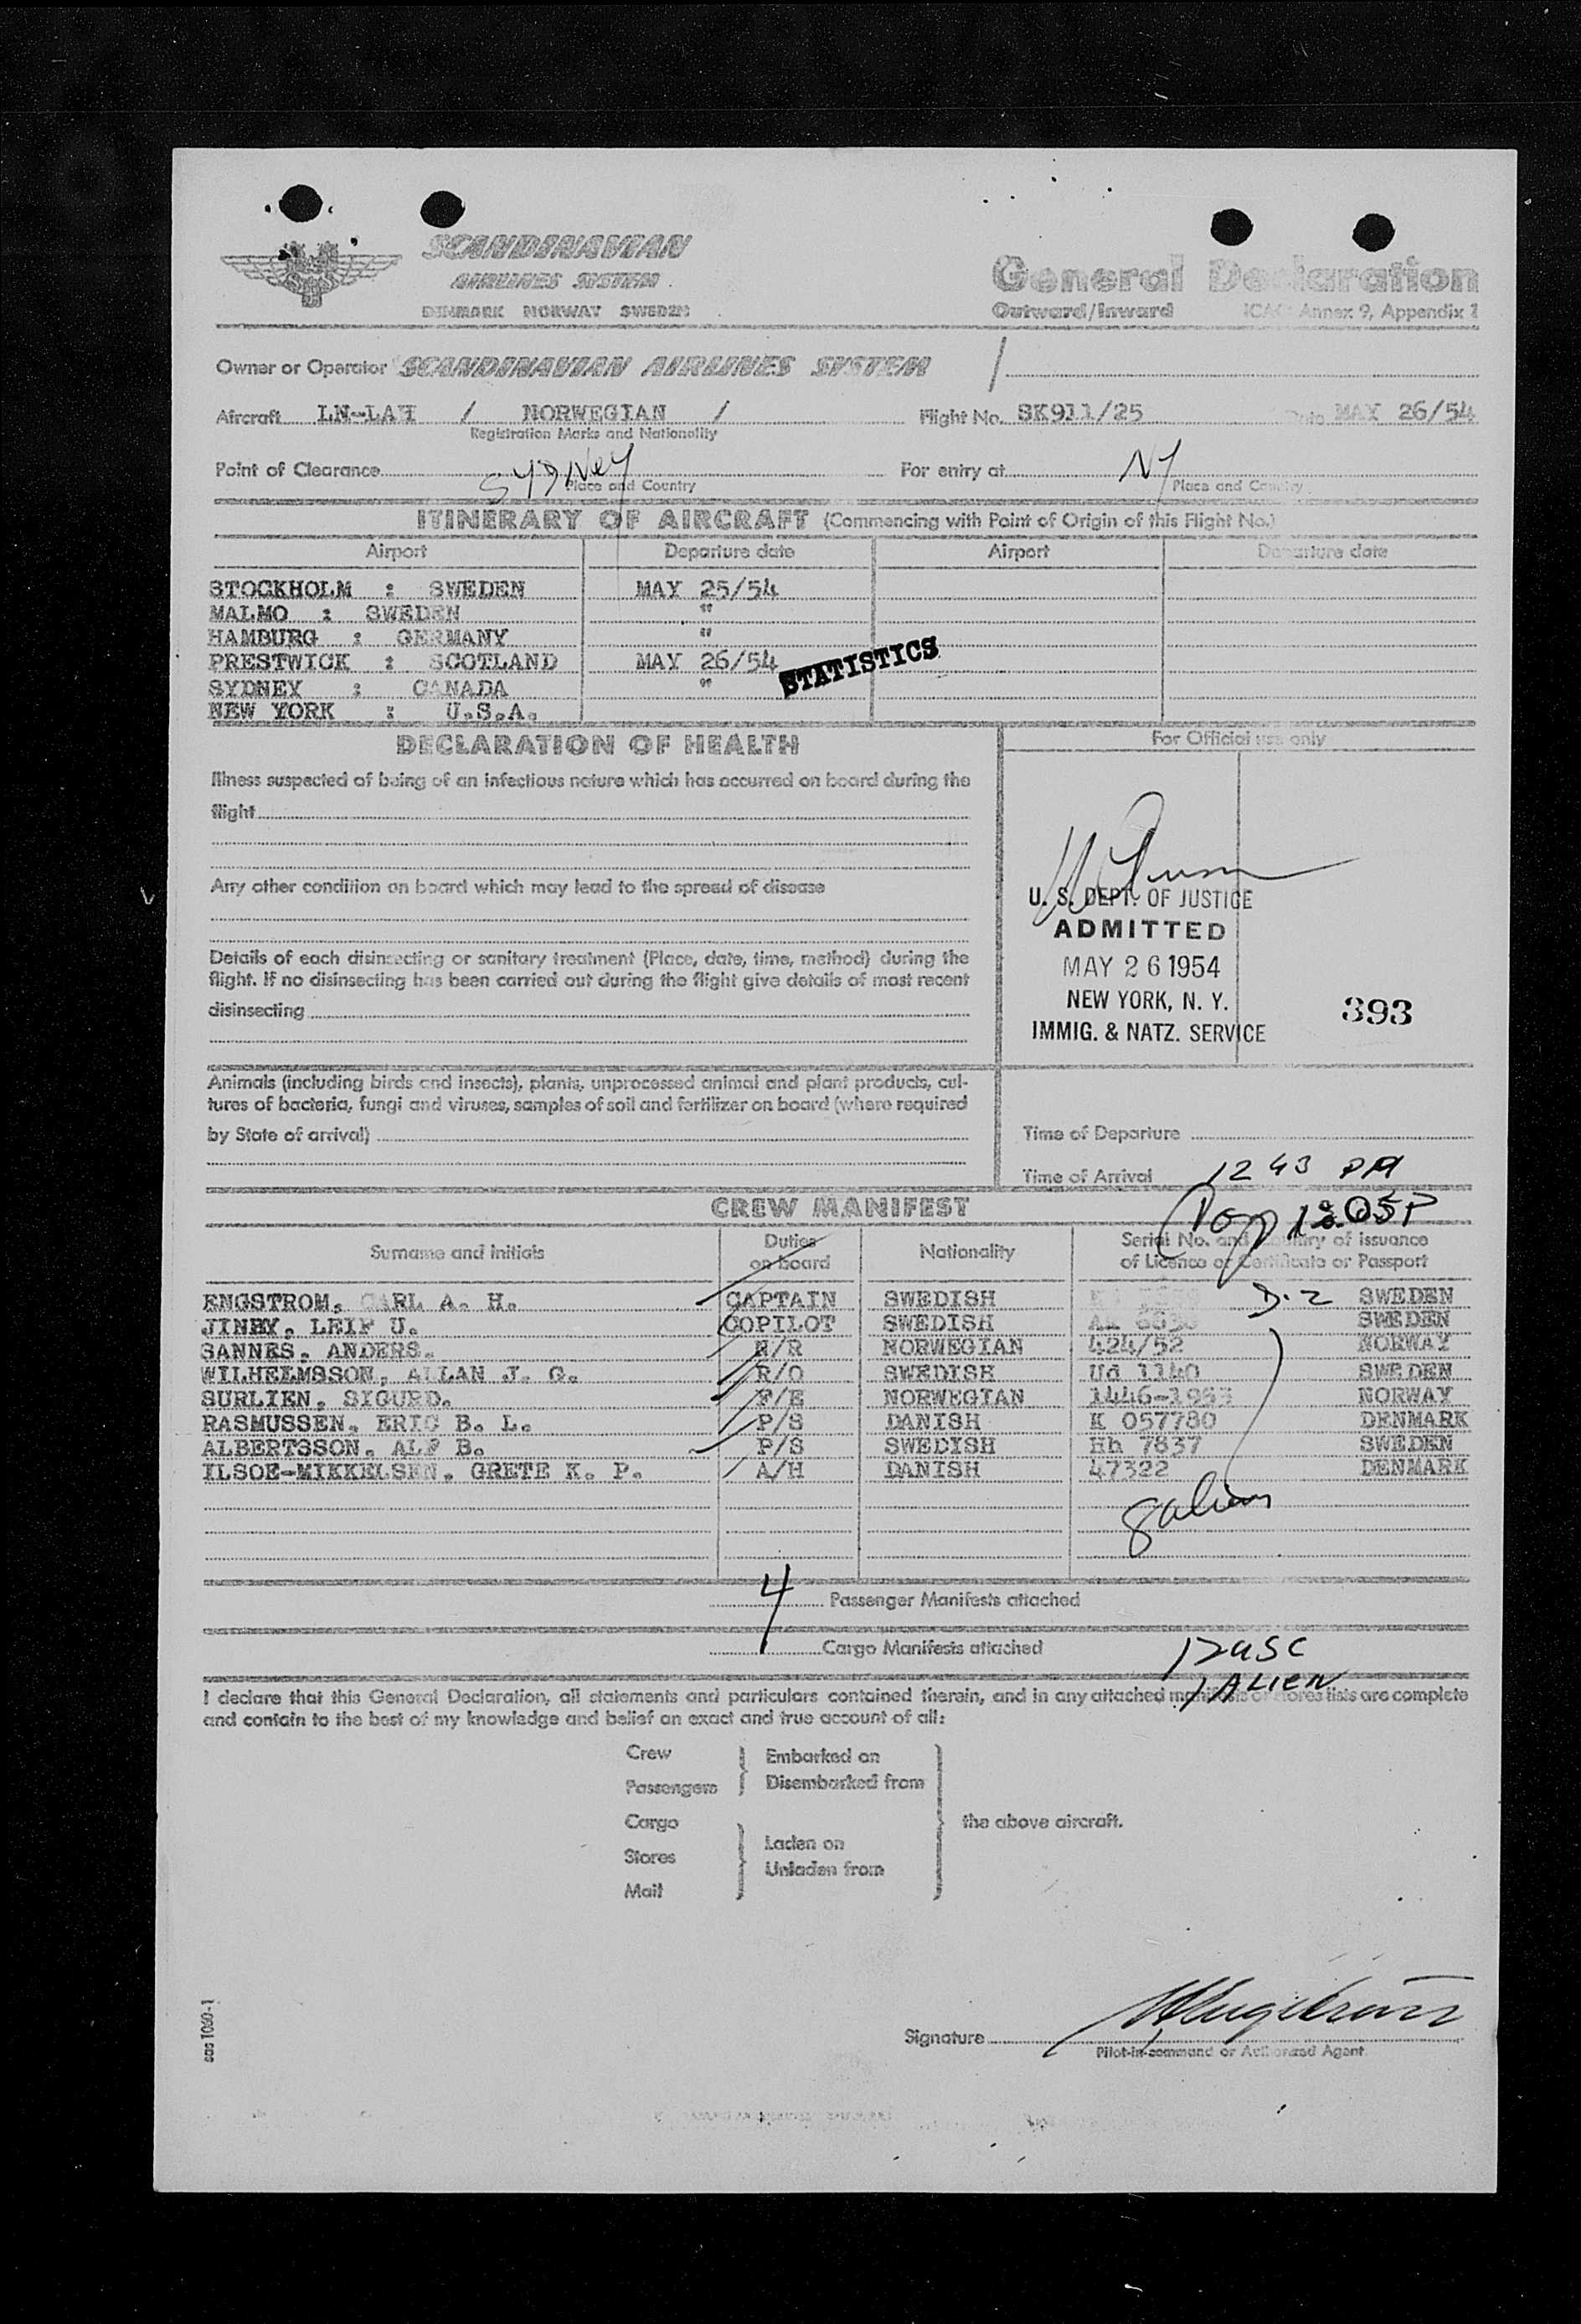 SCANDINAVIAN
AIRLINES SYSTEM
DENMARK NORWAY SWEDEN
General Declaration
Outward/Inward ICAO Annex 9, Appendix 1
Owner or Operator SCANDINAVIAN AIRLINES SYSTEM
Aircraft LN-LAH / NORWEGIAN / Flight No. SK911/25 Date MAY 26/54
Registration Marks and Nationality
Point of Clearance SYDNEY For entry at NY
Place and Country Place and Country
ITINERARY OF AIRCRAFT (Commencing with Point of Origin of this Flight No.)
Airport Departure date Airport Departure date
STOCKHOLM : SWEDEN MAY 25/54
MALMO : SWEDEN "
HAMBURG : GERMANY "
PRESTWICK : SCOTLAND MAY 26/54
STATISTICS
SYDNEY : CANADA "
NEW YORK : U.S.A.
DECLARATION OF HEALTH
For Official use only
Illness suspected of being of an infectious nature which has occurred on board during the
flight
Any other condition on board which may lead to the spread of disease
Details of each disinsecting or sanitary treatment (Place, date, time, method) during the
flight. If no disinsecting has been carried out during the flight give details of most recent
disinsecting
U. S. DEPT. OF JUSTICE
ADMITTED
MAY 26 1954
NEW YORK, N. Y.
IMMIG. & NATZ. SERVICE
393
Animals (including birds and insects), plants, unprocessed animal and plant products, cul-
tures of bacteria, fungi and viruses, samples of soil and fertilizer on board (where required
by State of arrival)
Time of Departure
Time of Arrival 12 43 PM
CREW MANIFEST
Surname and initials Duties on board Nationality Serial No. and Country of issuance of Licence or Certificate or Passport
ENGSTROM, CARL A. H. CAPTAIN SWEDISH D-2 SWEDEN
JINBY, LEIF U. COPILOT SWEDISH SWEDEN
SANNES, ANDERS. N/R NORWEGIAN 424/52 NORWAY
WILHELMSSON, ALLAN J. G. R/O SWEDISH Ud 1140 SWEDEN
SURLIEN, SIGURD. F/E NORWEGIAN 1446-1953 NORWAY
RASMUSSEN, ERIC B. L. P/S DANISH K 057780 DENMARK
ALBERTSSON, ALF B. P/S SWEDISH Hh 7837 SWEDEN
ILSOE-MIKKELSEN, GRETE K. P. A/H DANISH 47322 DENMARK
8 alien
4
Passenger Manifests attached
Cargo Manifests attached
1 ALIEN
I declare that this General Declaration, all statements and particulars contained therein, and in any attached manifests or stores lists are complete
and contain to the best of my knowledge and belief an exact and true account of all:
Crew
Passengers
Embarked on
Disembarked from
Cargo
Stores
Mail
Laden on
Unladen from
the above aircraft.
Signature
Pilot-in-command or Authorized Agent
sas 1060-1